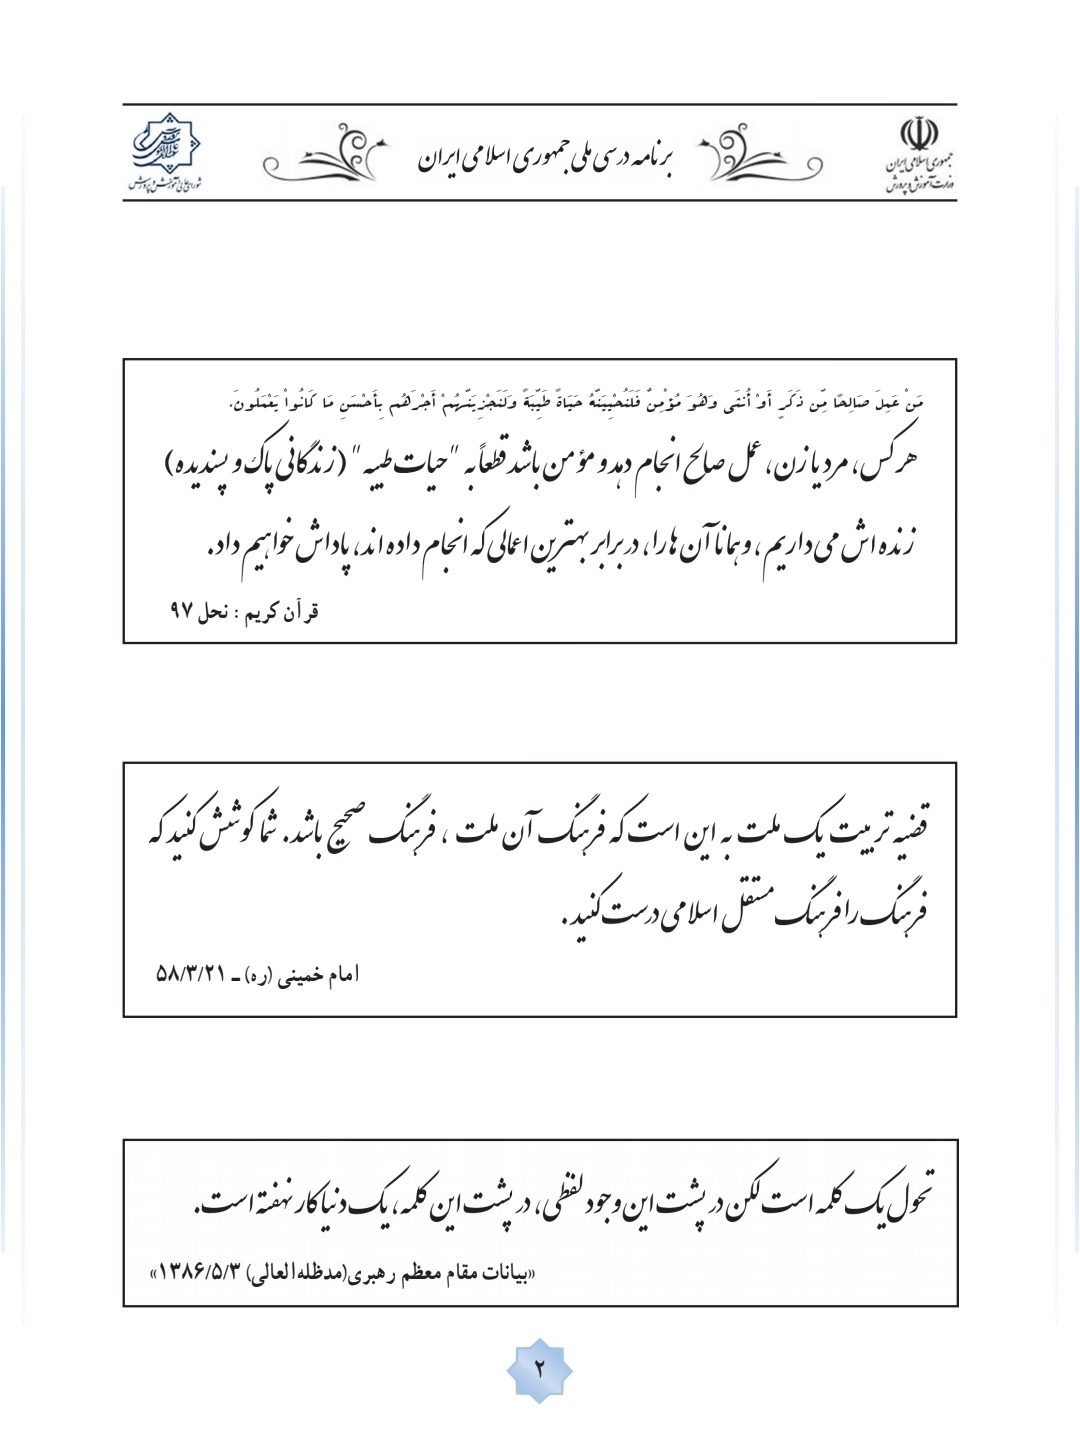 جمهوری اسلامی ایران
وزارت آموزش و پرورش
برنامه درسی ملی جمهوری اسلامی ایران
شورای عالی آموزش و پرورش
مَنْ عَمِلَ صَالِحًا مِّن ذَكَرٍ أَوْ أُنثَى وَهُوَ مُؤْمِنٌ فَلَنُحْيِيَنَّهُ حَيَاةً طَيِّبَةً وَلَنَجْزِيَنَّهُمْ أَجْرَهُم بِأَحْسَنِ مَا كَانُواْ يَعْمَلُونَ.
هر کس، مرد یا زن، عمل صالح انجام دهد و مؤمن باشد قطعاً به "حیات طیبه" (زندگانی پاک و پسندیده)
زنده اش می داریم، و همانا آن ها را، در برابر بهترین اعمالی که انجام داده اند، پاداش خواهیم داد.
قرآن کریم : نحل ۹۷
قضیه تربیت یک ملت به این است که فرهنگ آن ملت ، فرهنگ صحیح باشد. شما کوشش کنید که
فرهنگ را فرهنگ مستقل اسلامی درست کنید.
امام خمینی (ره) ـ ۵۸/۳/۲۱
تحول یک کلمه است لکن در پشت این وجود لفظی، در پشت این کلمه، یک دنیا کار نهفته است.
«بیانات مقام معظم رهبری(مدظله العالی) ۱۳۸۶/۵/۳»
۲